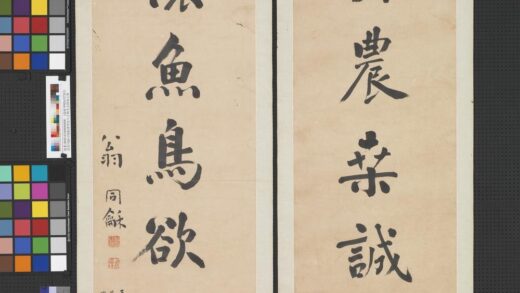 農桒誠
魚鳥欲
翁同龢